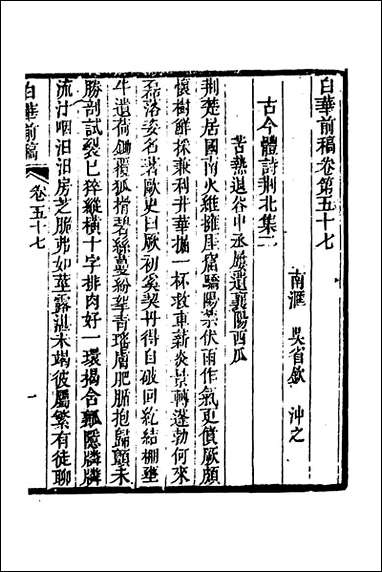 白華前稿卷第五十七
南滙 吳省欽 沖之
古今體詩荆北集二
苦熱退谷中丞屢遺襄陽西瓜
荆楚居國南火維擁厓窟驕陽禁伏雨作氣更僨厥頗
懷樹鮮採兼利井華攝一杯救車薪炎景轉蓬勃何來
磊落姿名著歐史曰厥初奚契丹得自破回紇結棚壅
牛遺荷鋤覆狐搰碧絲蔓紛牽青瑤膚肥腯抱歸顛未
勝剖試裂已猝縱橫十字排肉好一環揭令瓤隱隣隣
流汁咽汨汨房芝脈弗如莖露湛未竭彼屬繁有徒聊
白華前稿
卷五十七
一